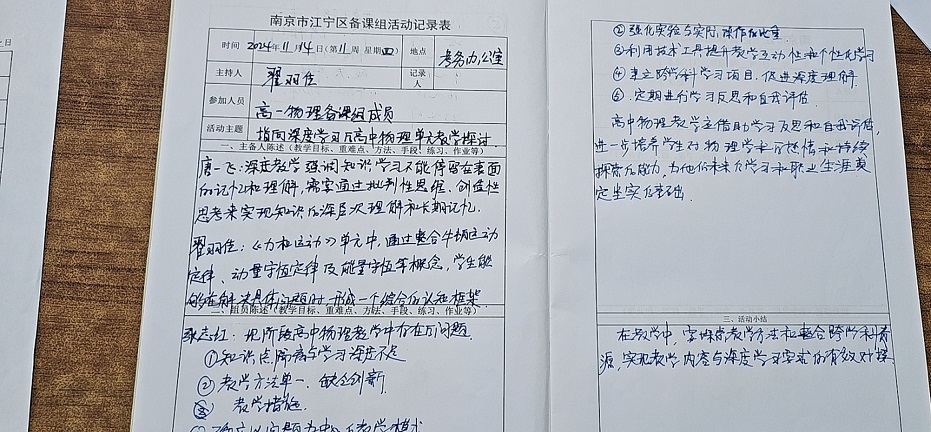 南京市江宁区备课组活动记录表
时间 2024年11月14日(第11周 星期四) 地点 考务办公室
主持人 翟羽佳 记录人
参加人员 高一物理备课组成员
活动主题 指向深度学习的高中物理单元教学探讨
一、主备人陈述(教学目标、重难点、方法、手段、练习、作业等)
唐一飞:深度教学强调知识学习不能停留在表面
的记忆和理解,需要通过批判性思维、创造性
思考来实现知识的深层次理解和长期记忆.
翟羽佳:《力和运动》单元中,通过整合牛顿运动
定律、动量守恒定律及能量守恒等概念,学生能
够在解决具体问题时形成一个综合的认知框架.
二、组员陈述(教学目标、重难点、方法、手段、练习、作业等)
张志红:现阶段高中物理教学中存在的问题.
①知识点隔离与学习深度不足
②教学方法单一、缺乏创新
③ 教学措施.
①确立以问题为中心的教学模式
②强化实验与实际操作的比重
③利用技术工具提升教学互动性和个性化学习
④建立跨学科学习项目,促进深度理解.
⑤.定期进行学习反思和自我评估.
高中物理教学应借助学习反思和自我评估,
进一步培养学生对物理学科的热情和持续
探索的能力,为他们未来的学习和职业生涯奠
定坚实的基础.
三、活动小结
在教学中,安排好教学方法和整合跨学科资
源,实现教学内容与深度学习要求的有效对接.